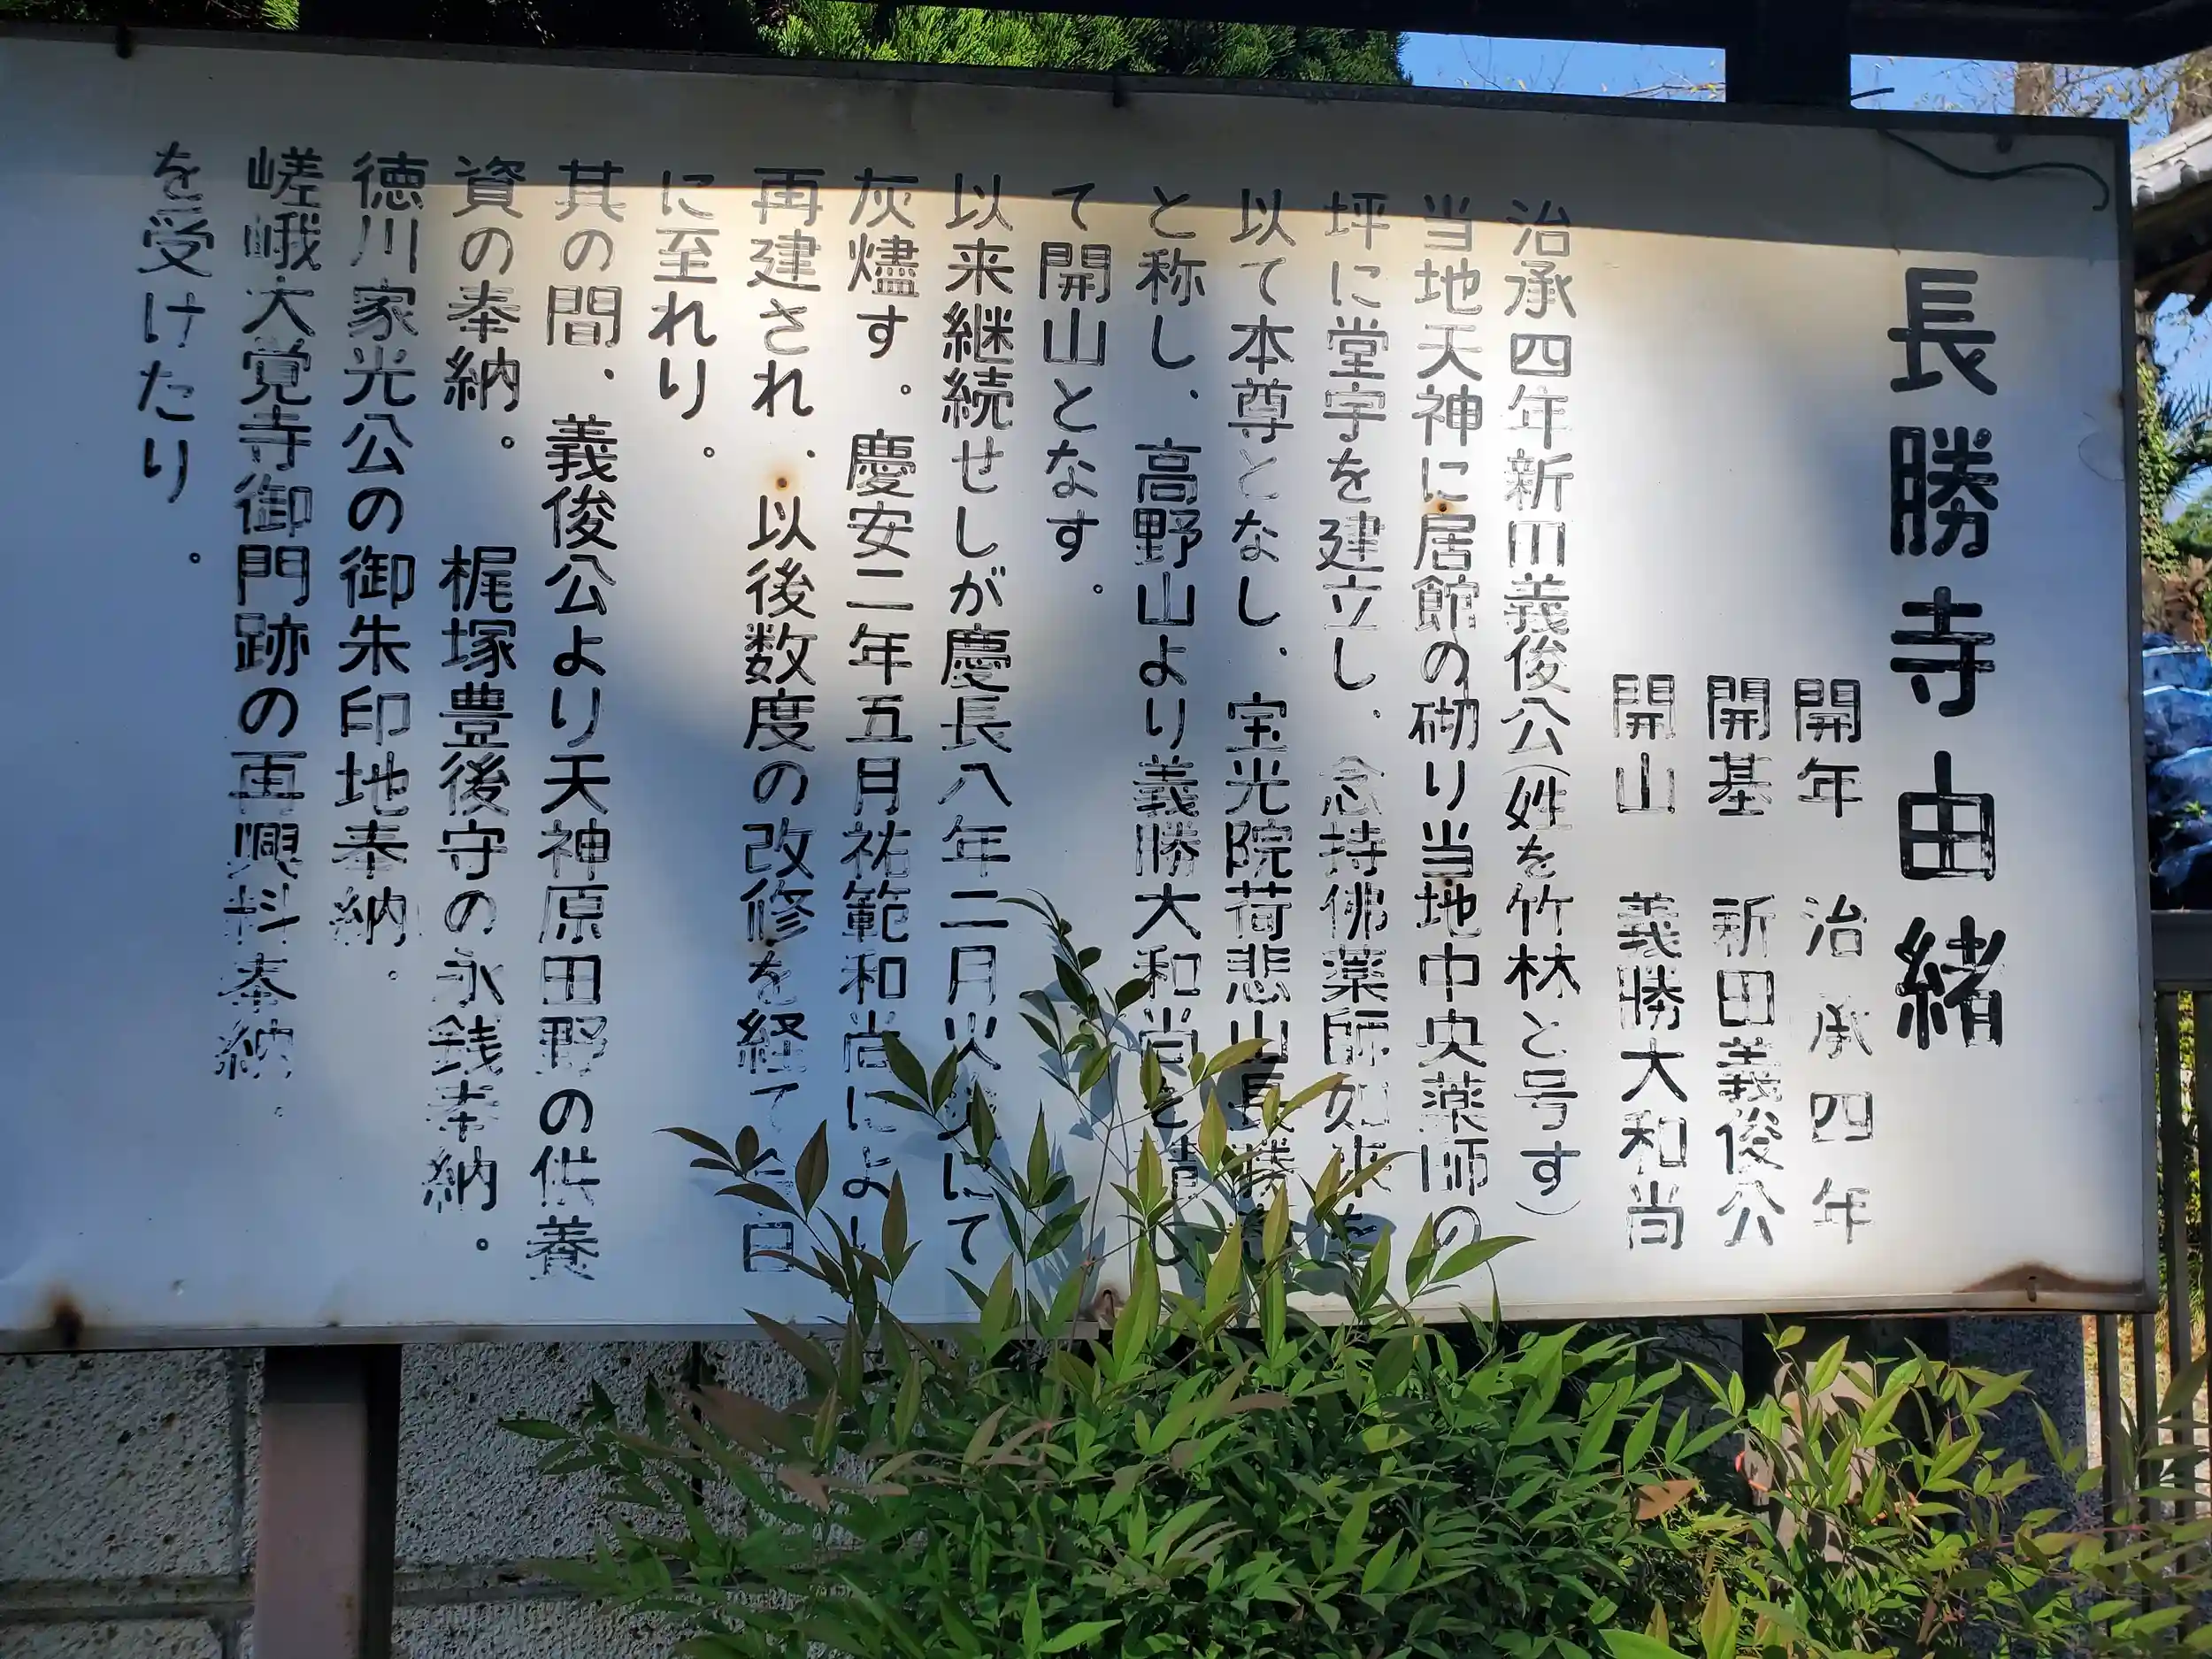 長勝寺由緒
開年 治承四年
開基 新田義俊公
開山 義勝大和尚
治承四年新田義俊公(姓を竹林と号す)
当地天神に居館の砌り当地中央薬師の
坪に堂宇を建立し、念持佛薬師如来を
以て本尊となし、宝光院荷悲山長勝寺
と称し、高野山より義勝大和尚を請し
て開山となす。
以来継続せしが慶長八年二月火災にて
灰燼す。慶安二年五月祐範和尚により
再建され、以後数度の改修を経て今日
に至れり。
其の間、義俊公より天神原田野の供養
資の奉納。 梶塚豊後守の永銭奉納。
徳川家光公の御朱印地奉納。
嵯峨大覚寺御門跡の再興料奉納。
を受けたり。